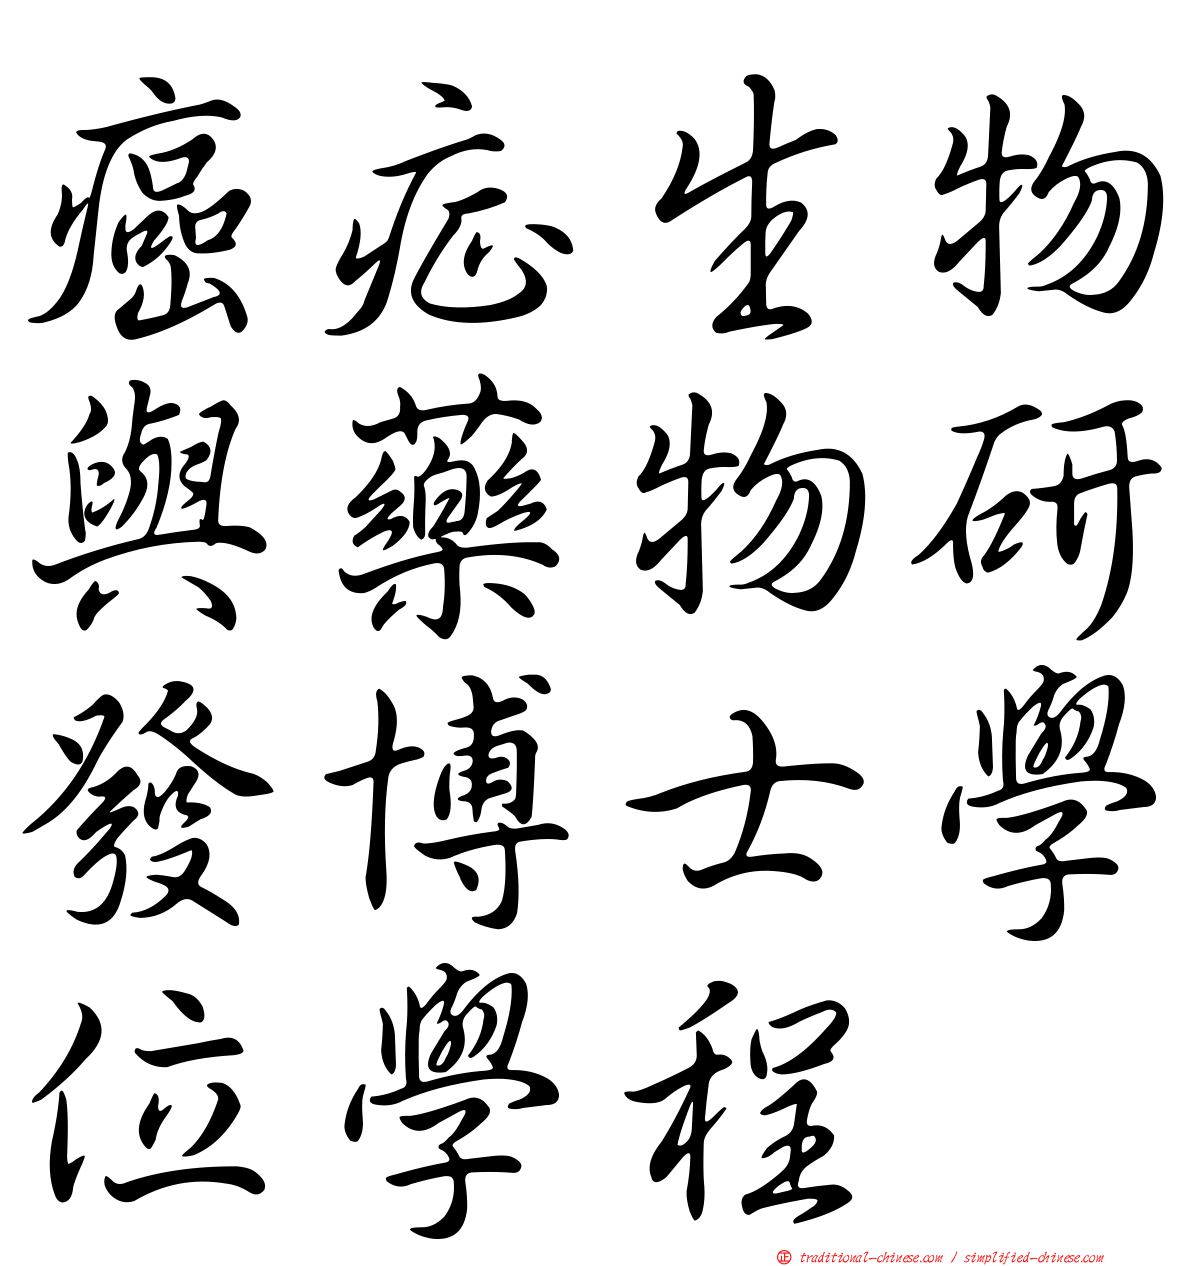 癌症生物
與藥物研
發博士學
位學程
正 traditional-chinese.com / simplified-chinese.com